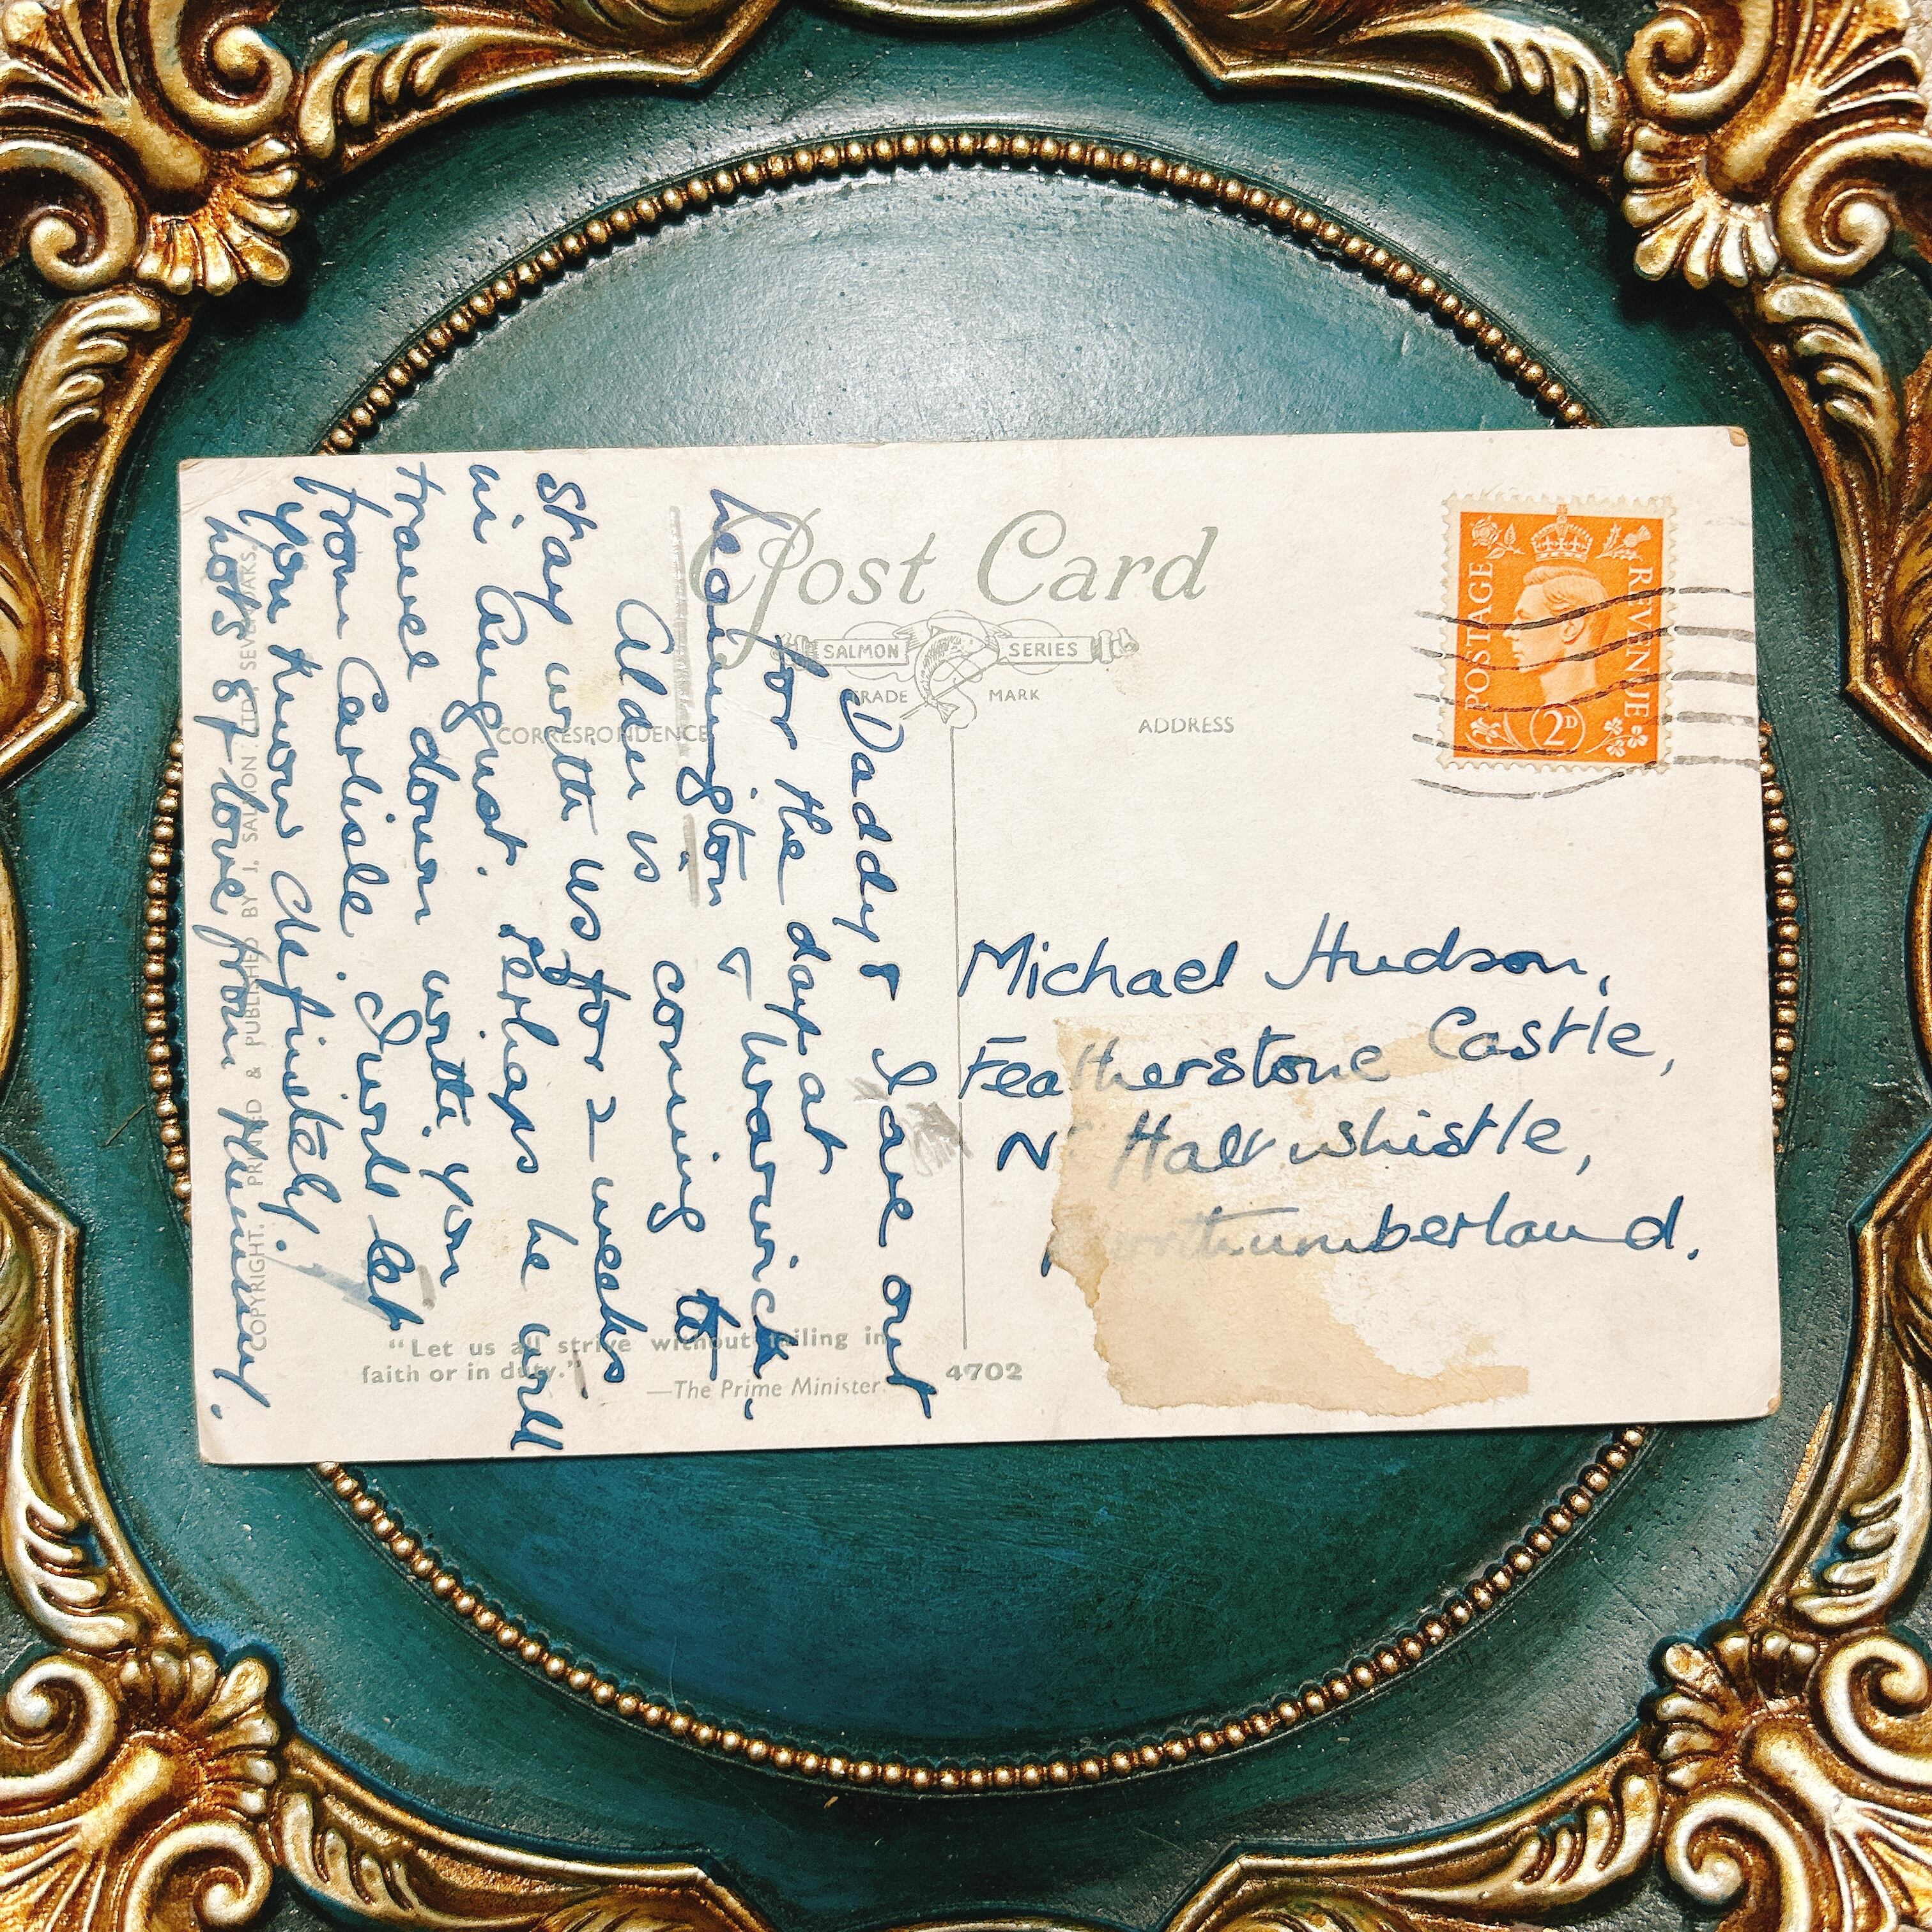 Post Card
SALMON SERIES
TRADE MARK
CORRESPONDENCE
ADDRESS
POSTAGE
REVENUE
2D
Daddy & I are out
for the day at
Leamington & Warwick.
Alder is coming to
stay with us for 2 weeks
in August. Perhaps he will
travel down with you
from Carlisle. I will let
you know definitely.
hots of love from Mummy.
Michael Hudson,
Featherstone Castle,
Nr Haltwhistle,
Northumberland.
"Let us all strive without failing in
faith or in duty."
—The Prime Minister.
4702
COPYRIGHT. PRINTED & PUBLISHED BY J. SALMON LTD. SEVENOAKS.